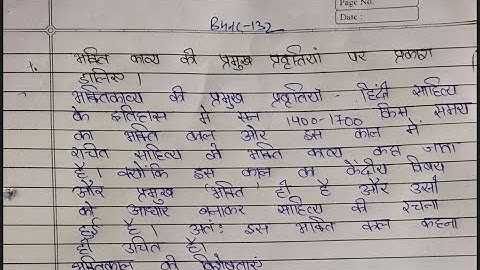 Page No.
Date :
BHDC-132
1. भक्ति काव्य की प्रमुख प्रवृत्तियां पर प्रकाश
डालिए।
भक्तिकाव्य की प्रमुख प्रवृत्तियाँ - हिंदी साहित्य
के इतिहास में सन 1400-1700 किस समय
का भक्ति काल और इस काल में
रचित साहित्य को भक्ति काव्य कहा जाता
है। क्योंकि इस काल का केंद्रीय विषय
और प्रमुख 'भक्ति' ही है और उसी
को आधार बनाकर साहित्य की रचना
हुई है। अतः इस भक्ति काल कहना
ही उचित है।
भक्तिकाल की विशेषताएं